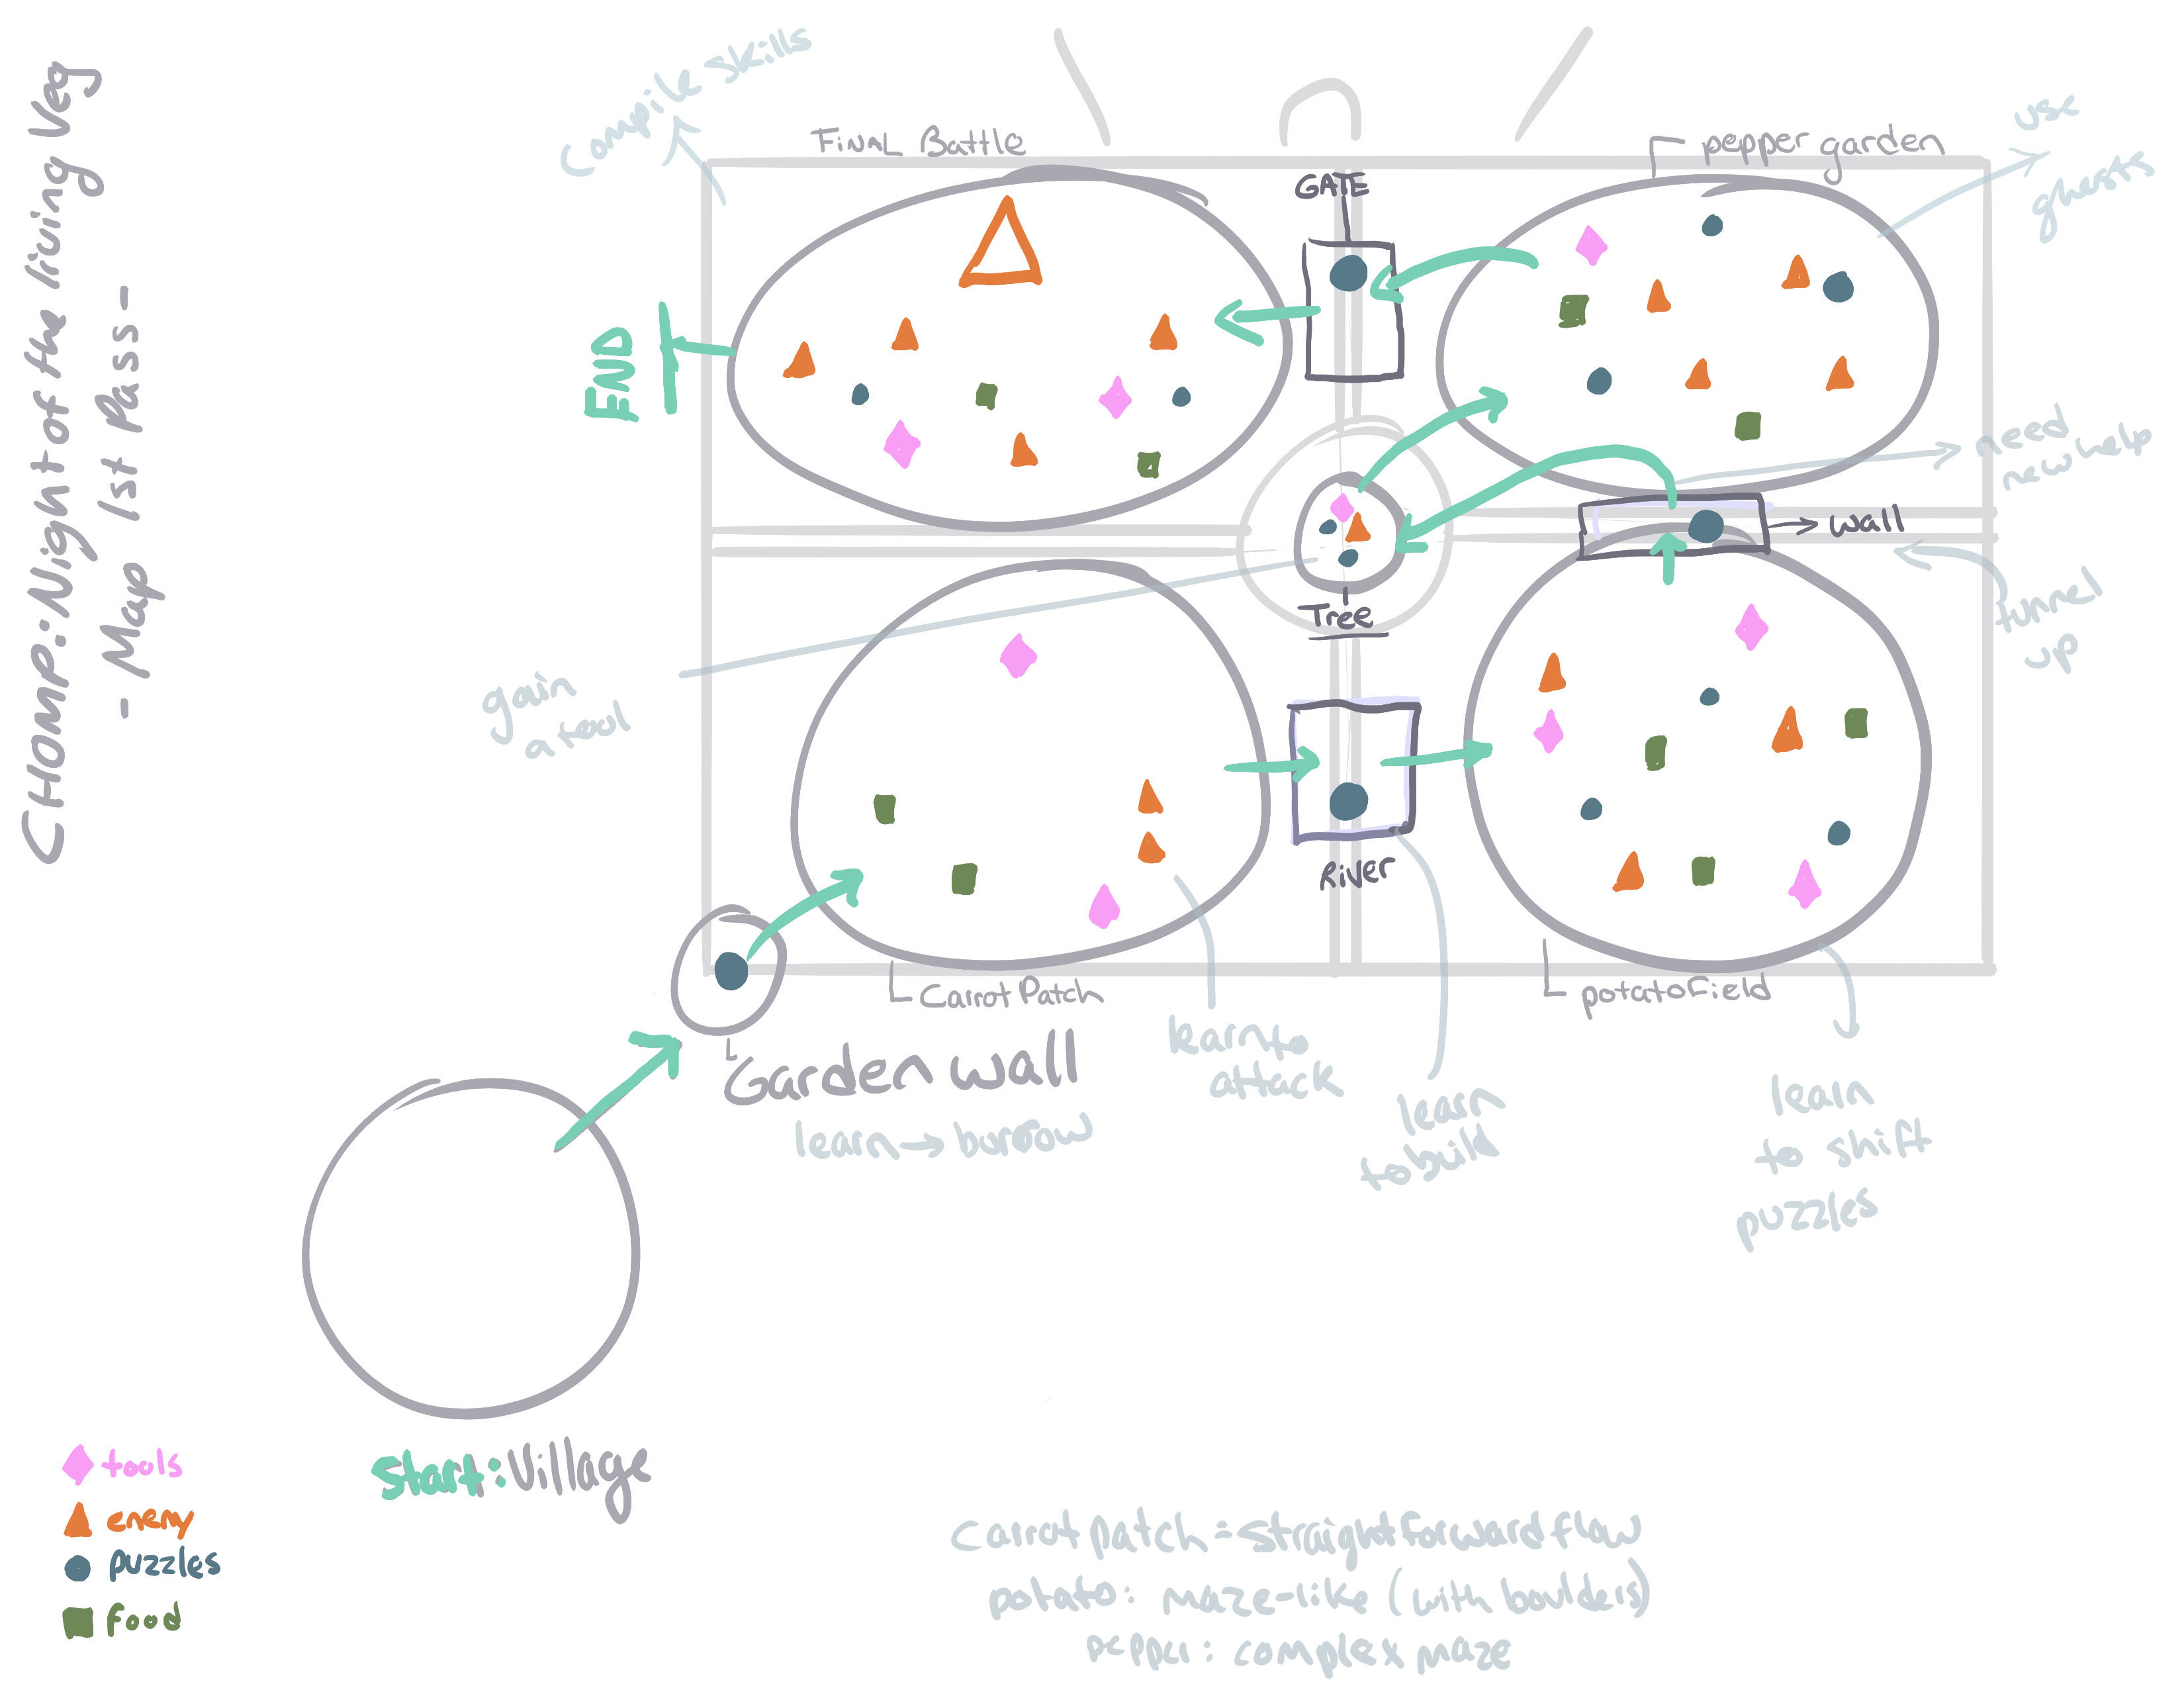 CHOMP: Night of the living Veg
- Map 1st Pass -
Compile skills
Final Battle
GATE
pepper garden
use
ghosts
END
need
new help
wall
tunnel
up
Tree
gain
a tool
River
Carrot Patch
potato Field
Garden wall
learn → burrow
learn to
attack
learn
to build
learn
to shift
puzzles
Start: Village
tools
enemy
puzzles
food
Carrot Patch = straight forward flow
potato: maze-like (with boulders)
pepper: complex maze